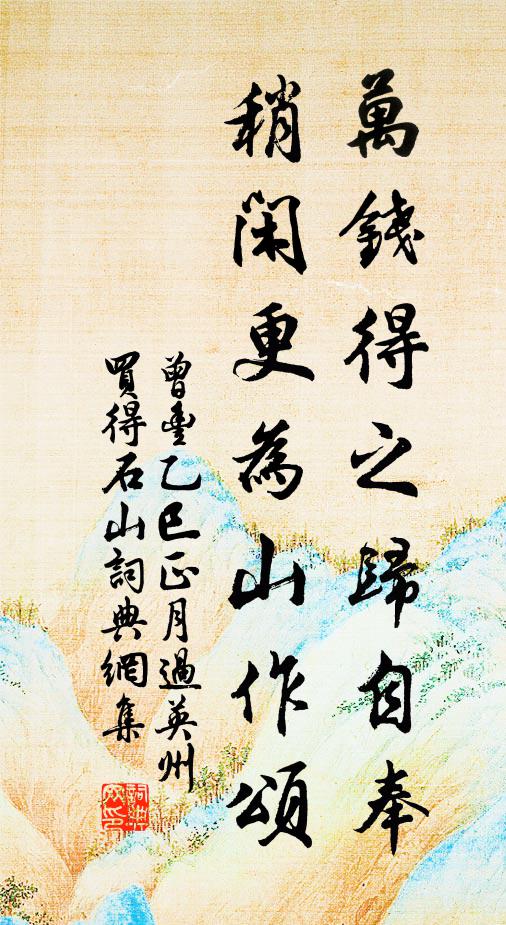 萬錢得之歸自奉
稍閑更為山作頌
曾豐乙巳正月過英州
買得石山詞典網集